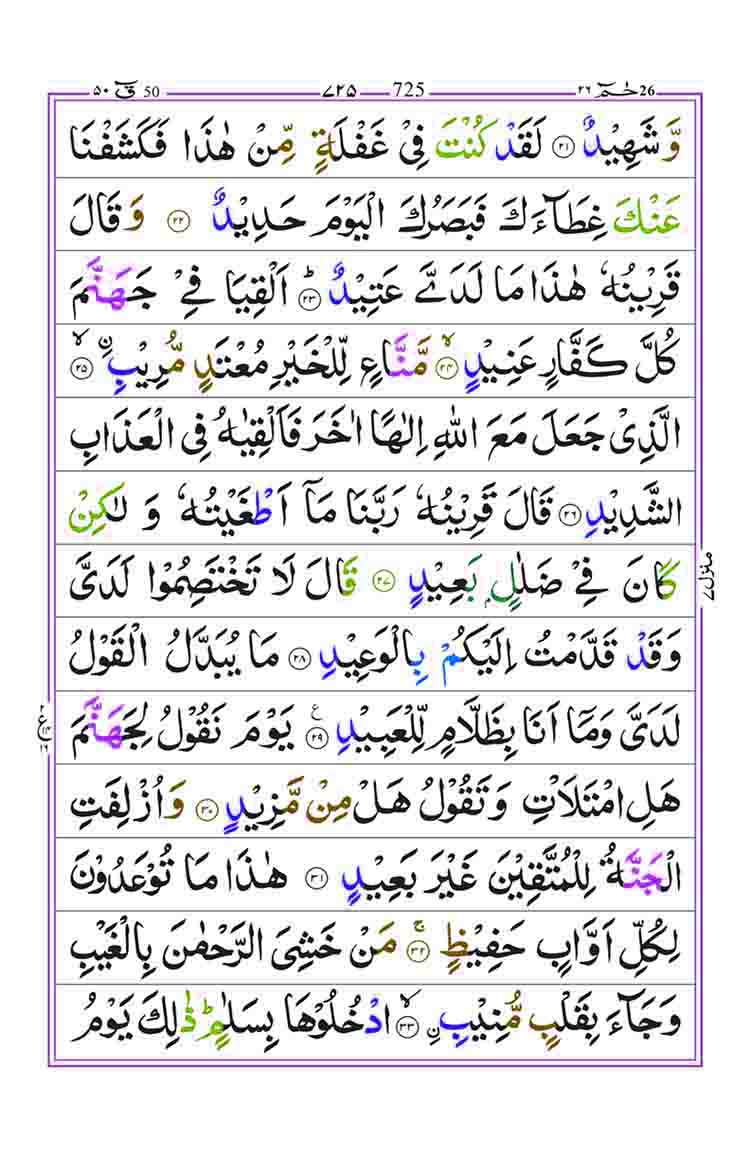 26 حٰمٓ ٢٦ 725 ٧٢٥ 50 قٓ ٥٠
وَّ شَهِيْدٌ ٢١ لَقَدْ كُنْتَ فِيْ غَفْلَةٍ مِّنْ هٰذَا فَكَشَفْنَا
عَنْكَ غِطَآءَكَ فَبَصَرُكَ الْيَوْمَ حَدِيْدٌ ٢٢ وَقَالَ
قَرِيْنُهٗ هٰذَا مَا لَدَيَّ عَتِيْدٌ ؕ ٢٣ اَلْقِيَا فِيْ جَهَنَّمَ
كُلَّ كَفَّارٍ عَنِيْدٍ ۙ ٢٤ مَّنَّاعٍ لِّلْخَيْرِ مُعْتَدٍ مُّرِيْبٍ ۙ ٢٥
الَّذِيْ جَعَلَ مَعَ اللّٰهِ اِلٰهًا اٰخَرَ فَاَلْقِيٰهُ فِي الْعَذَابِ
الشَّدِيْدِ ٢٦ قَالَ قَرِيْنُهٗ رَبَّنَا مَآ اَطْغَيْتُهٗ وَ لٰكِنْ
كَانَ فِيْ ضَلٰلٍۭ بَعِيْدٍ ٢٧ قَالَ لَا تَخْتَصِمُوْا لَدَيَّ
وَقَدْ قَدَّمْتُ اِلَيْكُمْ بِالْوَعِيْدِ ٢٨ مَا يُبَدَّلُ الْقَوْلُ
لَدَيَّ وَمَآ اَنَا بِظَلَّامٍ لِّلْعَبِيْدِ ٢٩ ع يَوْمَ نَقُوْلُ لِجَهَنَّمَ
هَلِ امْتَلَاْتِ وَتَقُوْلُ هَلْ مِنْ مَّزِيْدٍ ٣٠ وَاُزْلِفَتِ
الْجَنَّةُ لِلْمُتَّقِيْنَ غَيْرَ بَعِيْدٍ ٣١ هٰذَا مَا تُوْعَدُوْنَ
لِكُلِّ اَوَّابٍ حَفِيْظٍ ۚ ٣٢ مَنْ خَشِيَ الرَّحْمٰنَ بِالْغَيْبِ
وَجَآءَ بِقَلْبٍ مُّنِيْبِ ۙ ٣٣ نِ ادْخُلُوْهَا بِسَلٰمٍ ؕ ذٰلِكَ يَوْمُ
منزل ٧
ع